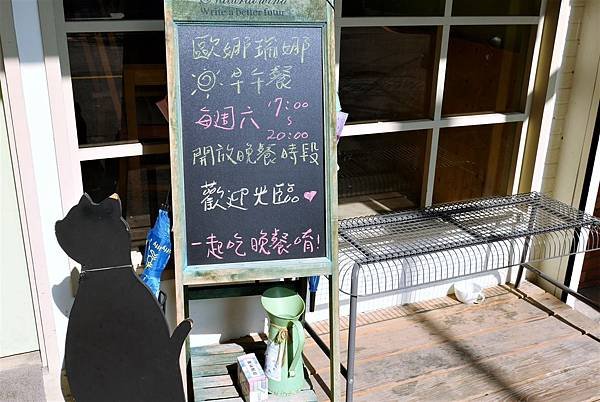 Natural wind
Write a better four
歐娜瑞娜
早午餐
每週六 17:00
20:00
開放晚餐時段
歡迎光臨
一起吃晚餐唷!